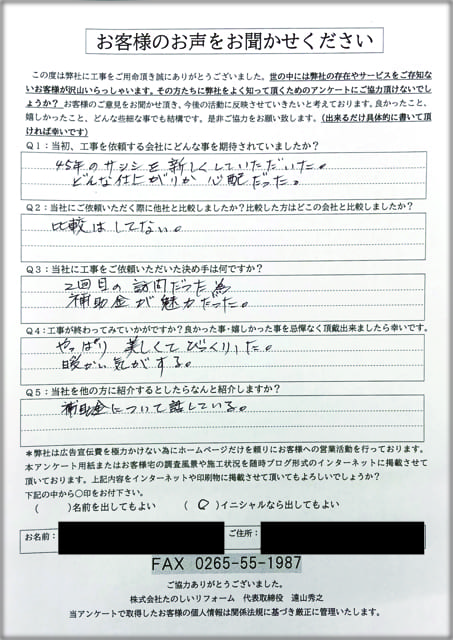 お客様のお声をお聞かせください
この度は弊社に工事をご用命頂き誠にありがとうございました。世の中には弊社の存在やサービスをご存知な
いお客様が沢山いらっしゃいます。その方たちに弊社をよく知って頂くためのアンケートにご協力頂けないでし
ょうか？ お客様のご意見をお聞かせ頂き、今後の活動に反映させていきたいと考えております。良かったこと、
嬉しかったこと、どんな些細な事でも結構です。是非ご協力をお願い致します。(出来るだけ具体的に書いて頂
ければ幸いです)
Q１：当初、工事を依頼する会社にどんな事を期待されていましたか？
45年のサッシを新しくしていただいた。
どんな仕上がりか 心配だった。
Q２：当社にご依頼いただく際に他社と比較しましたか？比較した方はどこの会社と比較しましたか？
比較はしてない。
Q３：当社に工事をご依頼いただいた決め手は何ですか？
2回目の訪問だった為
補助金が魅力だった。
Q４：工事が終わってみていかがですか？良かった事・嬉しかった事を忌憚なく頂戴出来ましたら幸いです。
やっぱり 美しくてびっくりした。
暖かい気がする。
Q５：当社を他の方に紹介するとしたらなんと紹介しますか？
補助金について話している。
＊弊社は広告宣伝費を極力かけない為にホームページだけを頼りにお客様への営業活動を行っております。
本アンケート用紙またはお客様宅の調査風景や施工状況を随時ブログ形式のインターネットに掲載させて
頂いております。上記内容をインターネットや印刷物に掲載させて頂いてもよろしいでしょうか？
下記の中から〇印をお付下さい。
( )名前を出してもよい ( 〇 )イニシャルなら出してもよい
お名前： ご住所：
FAX 0265-55-1987
ご協力ありがとうございました。
株式会社たのしいリフォーム 代表取締役 遠山秀之
当アンケートで取得したお客様の個人情報は関係法規に基づき厳正に管理いたします。